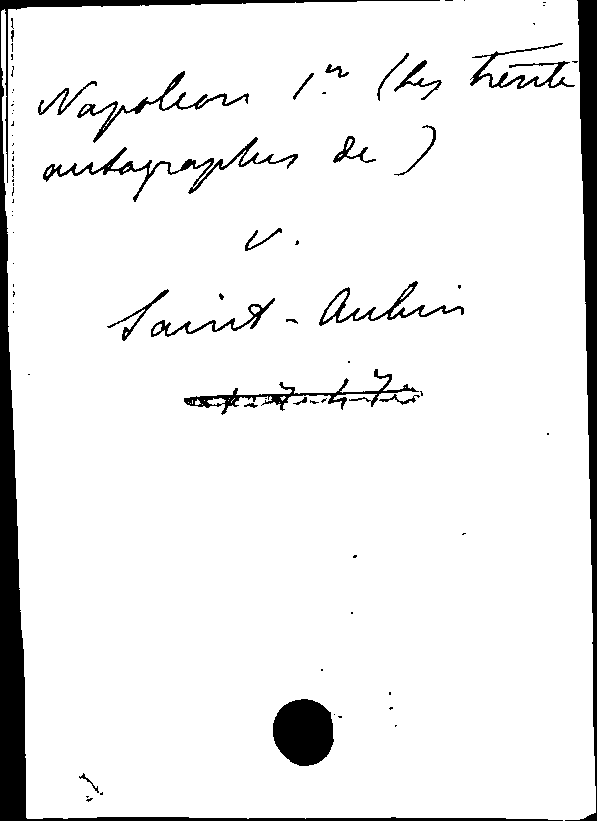 Napoleon 1er (Les trente
autographes de)
v.
Saint-Aubin